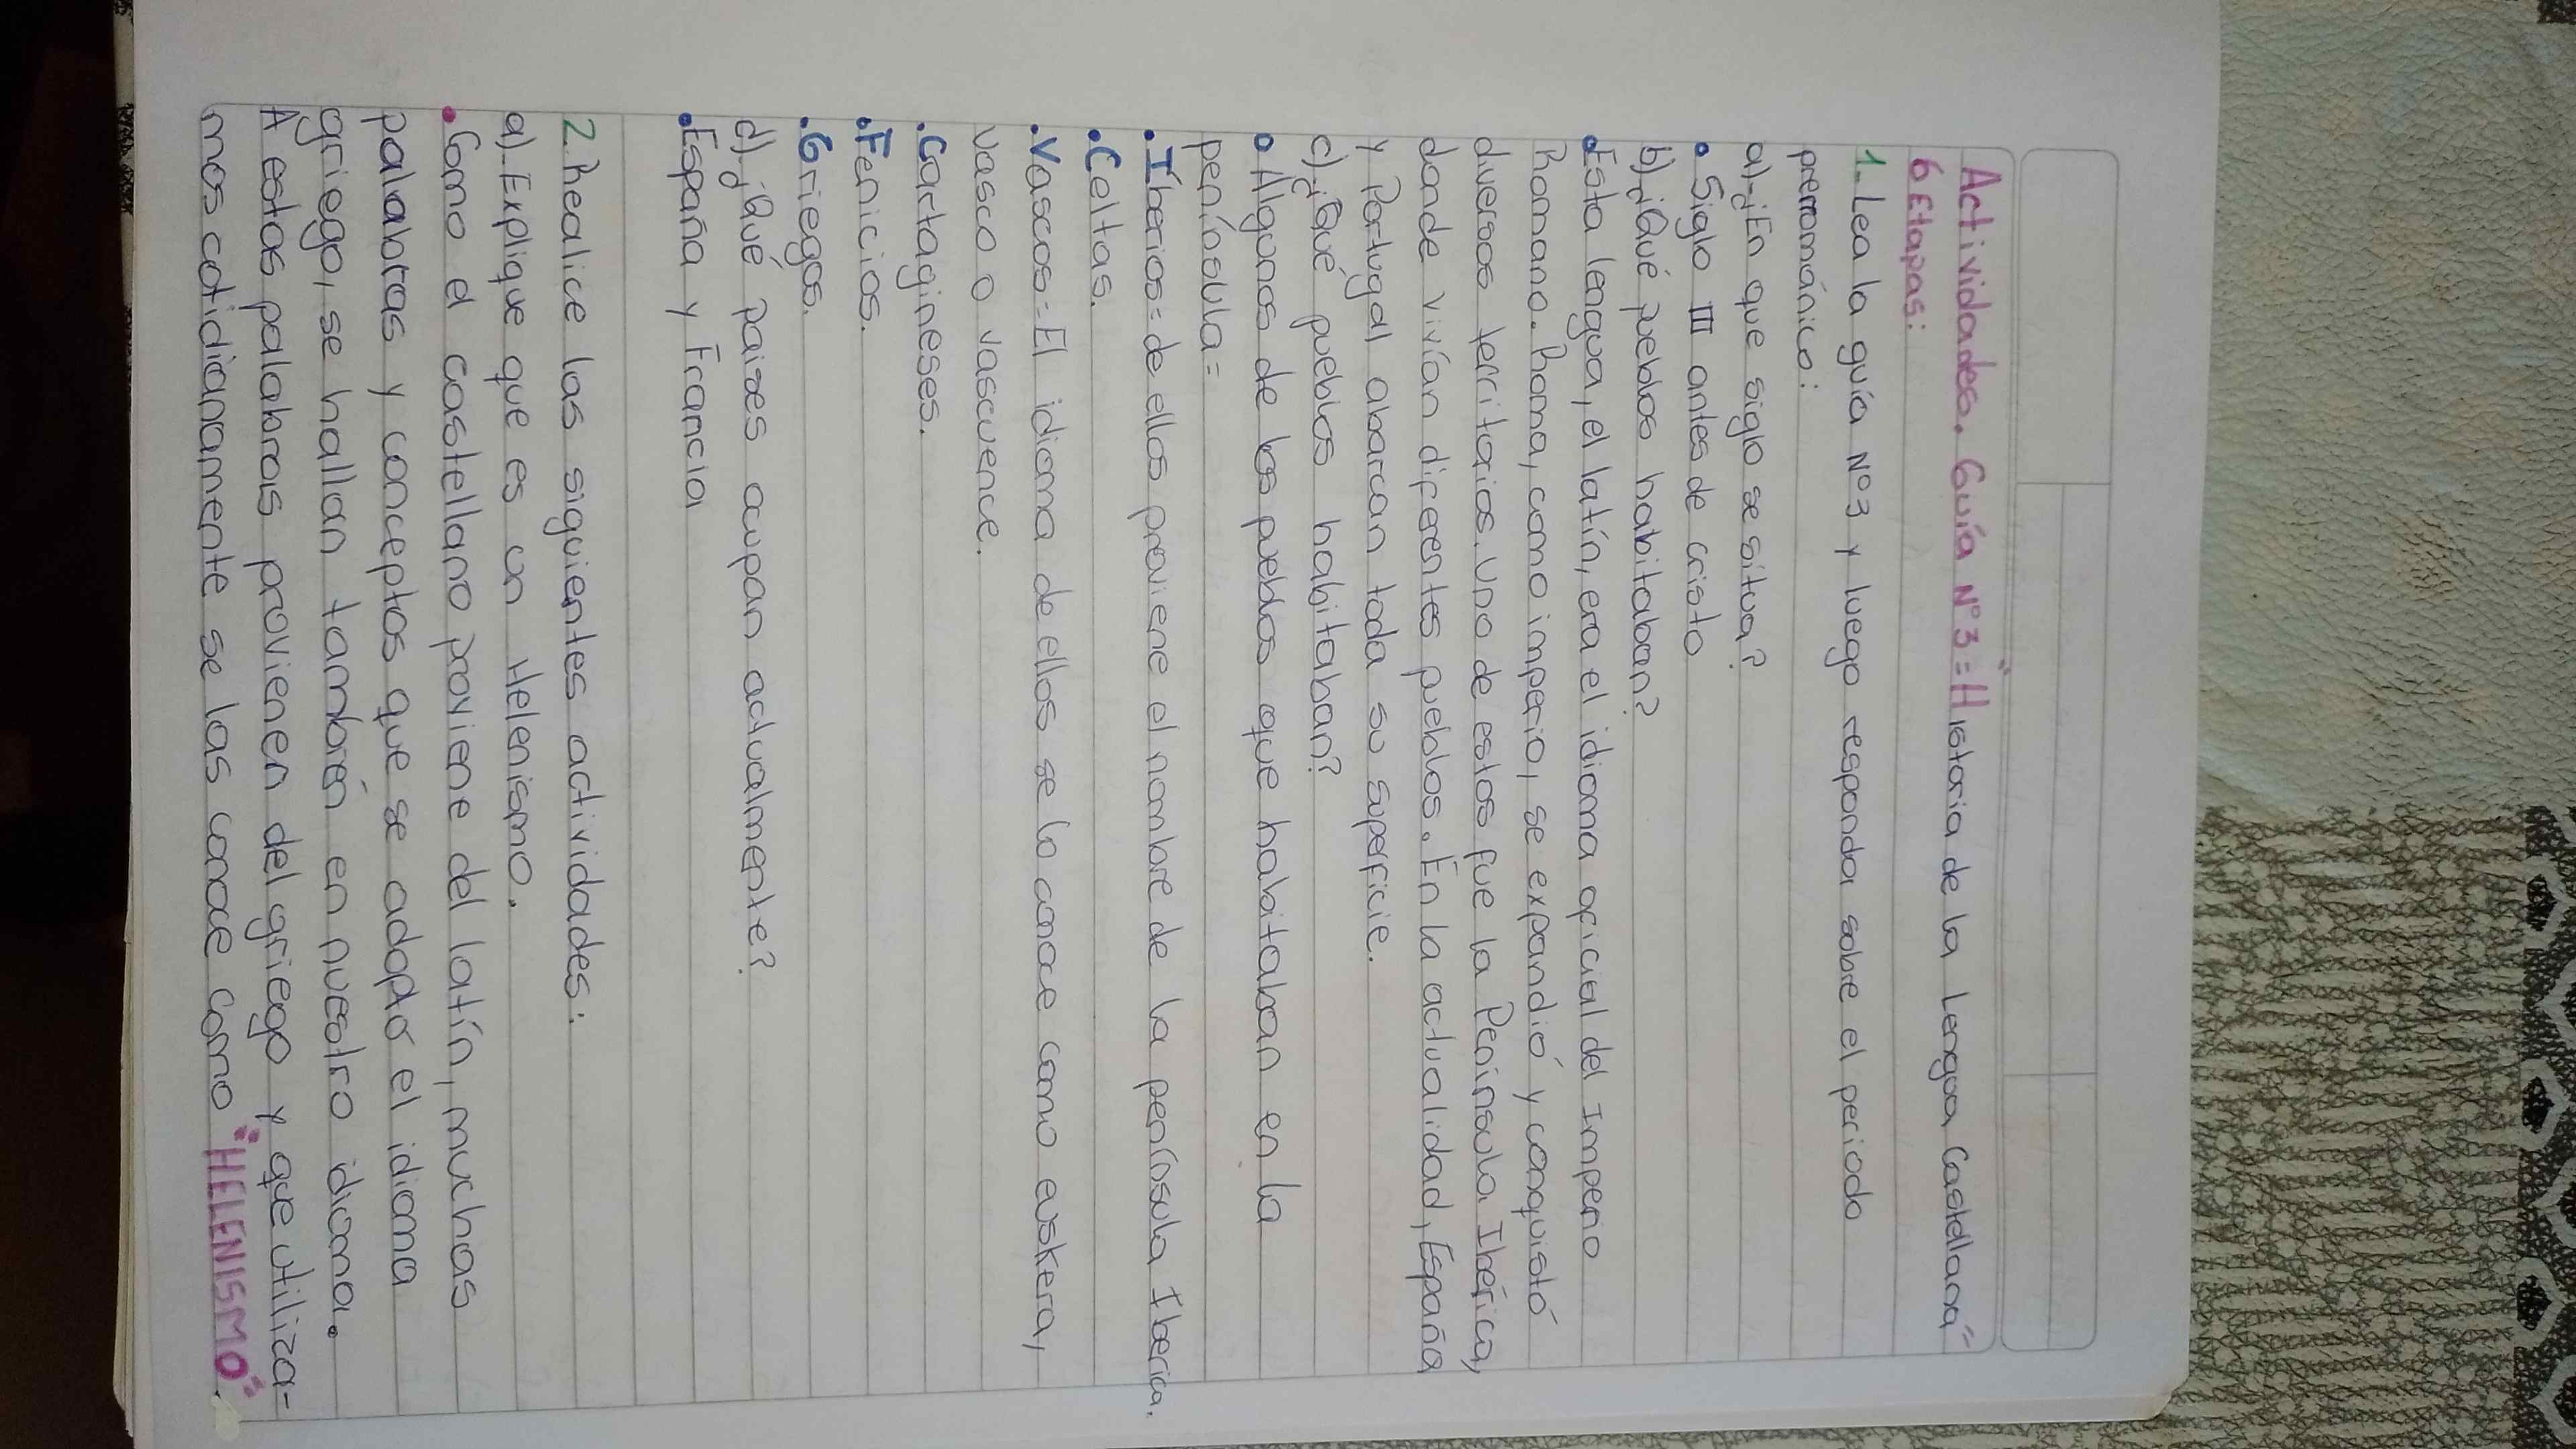 Actividades. Guía N°3="Historia de la Lengua Castellana"
6 Etapas:
1- Lea la guía N°3 y luego responda sobre el periodo
prerrománico:
a)-¿En que siglo se sitúa?
• Siglo III antes de cristo
b)-¿Qué pueblos habitaban?
•Esta lengua, el latín, era el idioma oficial del Imperio
Romano. Roma, como imperio, se expandió y conquistó
diversos territorios. Uno de estos fue la Península Ibérica,
donde vivían diferentes pueblos. En la actualidad, España
y Portugal abarcan toda su superficie.
c)-¿Qué pueblos habitaban?
• Algunos de los pueblos que habitaban en la
península=
•Íberios= de ellos proviene el nombre de la península Iberica.
•Celtas.
•Vascos= El idioma de ellos se lo conoce como euskera,
vasco o vascuence.
•Cartagineses.
•Fenicios.
•Griegos.
d)-¿Qué paises ocupan actualmente?
•España y Francia
2. Realice las siguientes actividades:
a) Explique que es un Helenismo.
•Como el castellano proviene del latín, muchas
palabras y conceptos que se adoptó el idioma
griego, se hallan también en nuestro idioma.
A estas palabras provienen del griego y que utiliza-
mos cotidianamente se las conoce como "HELENISMO".